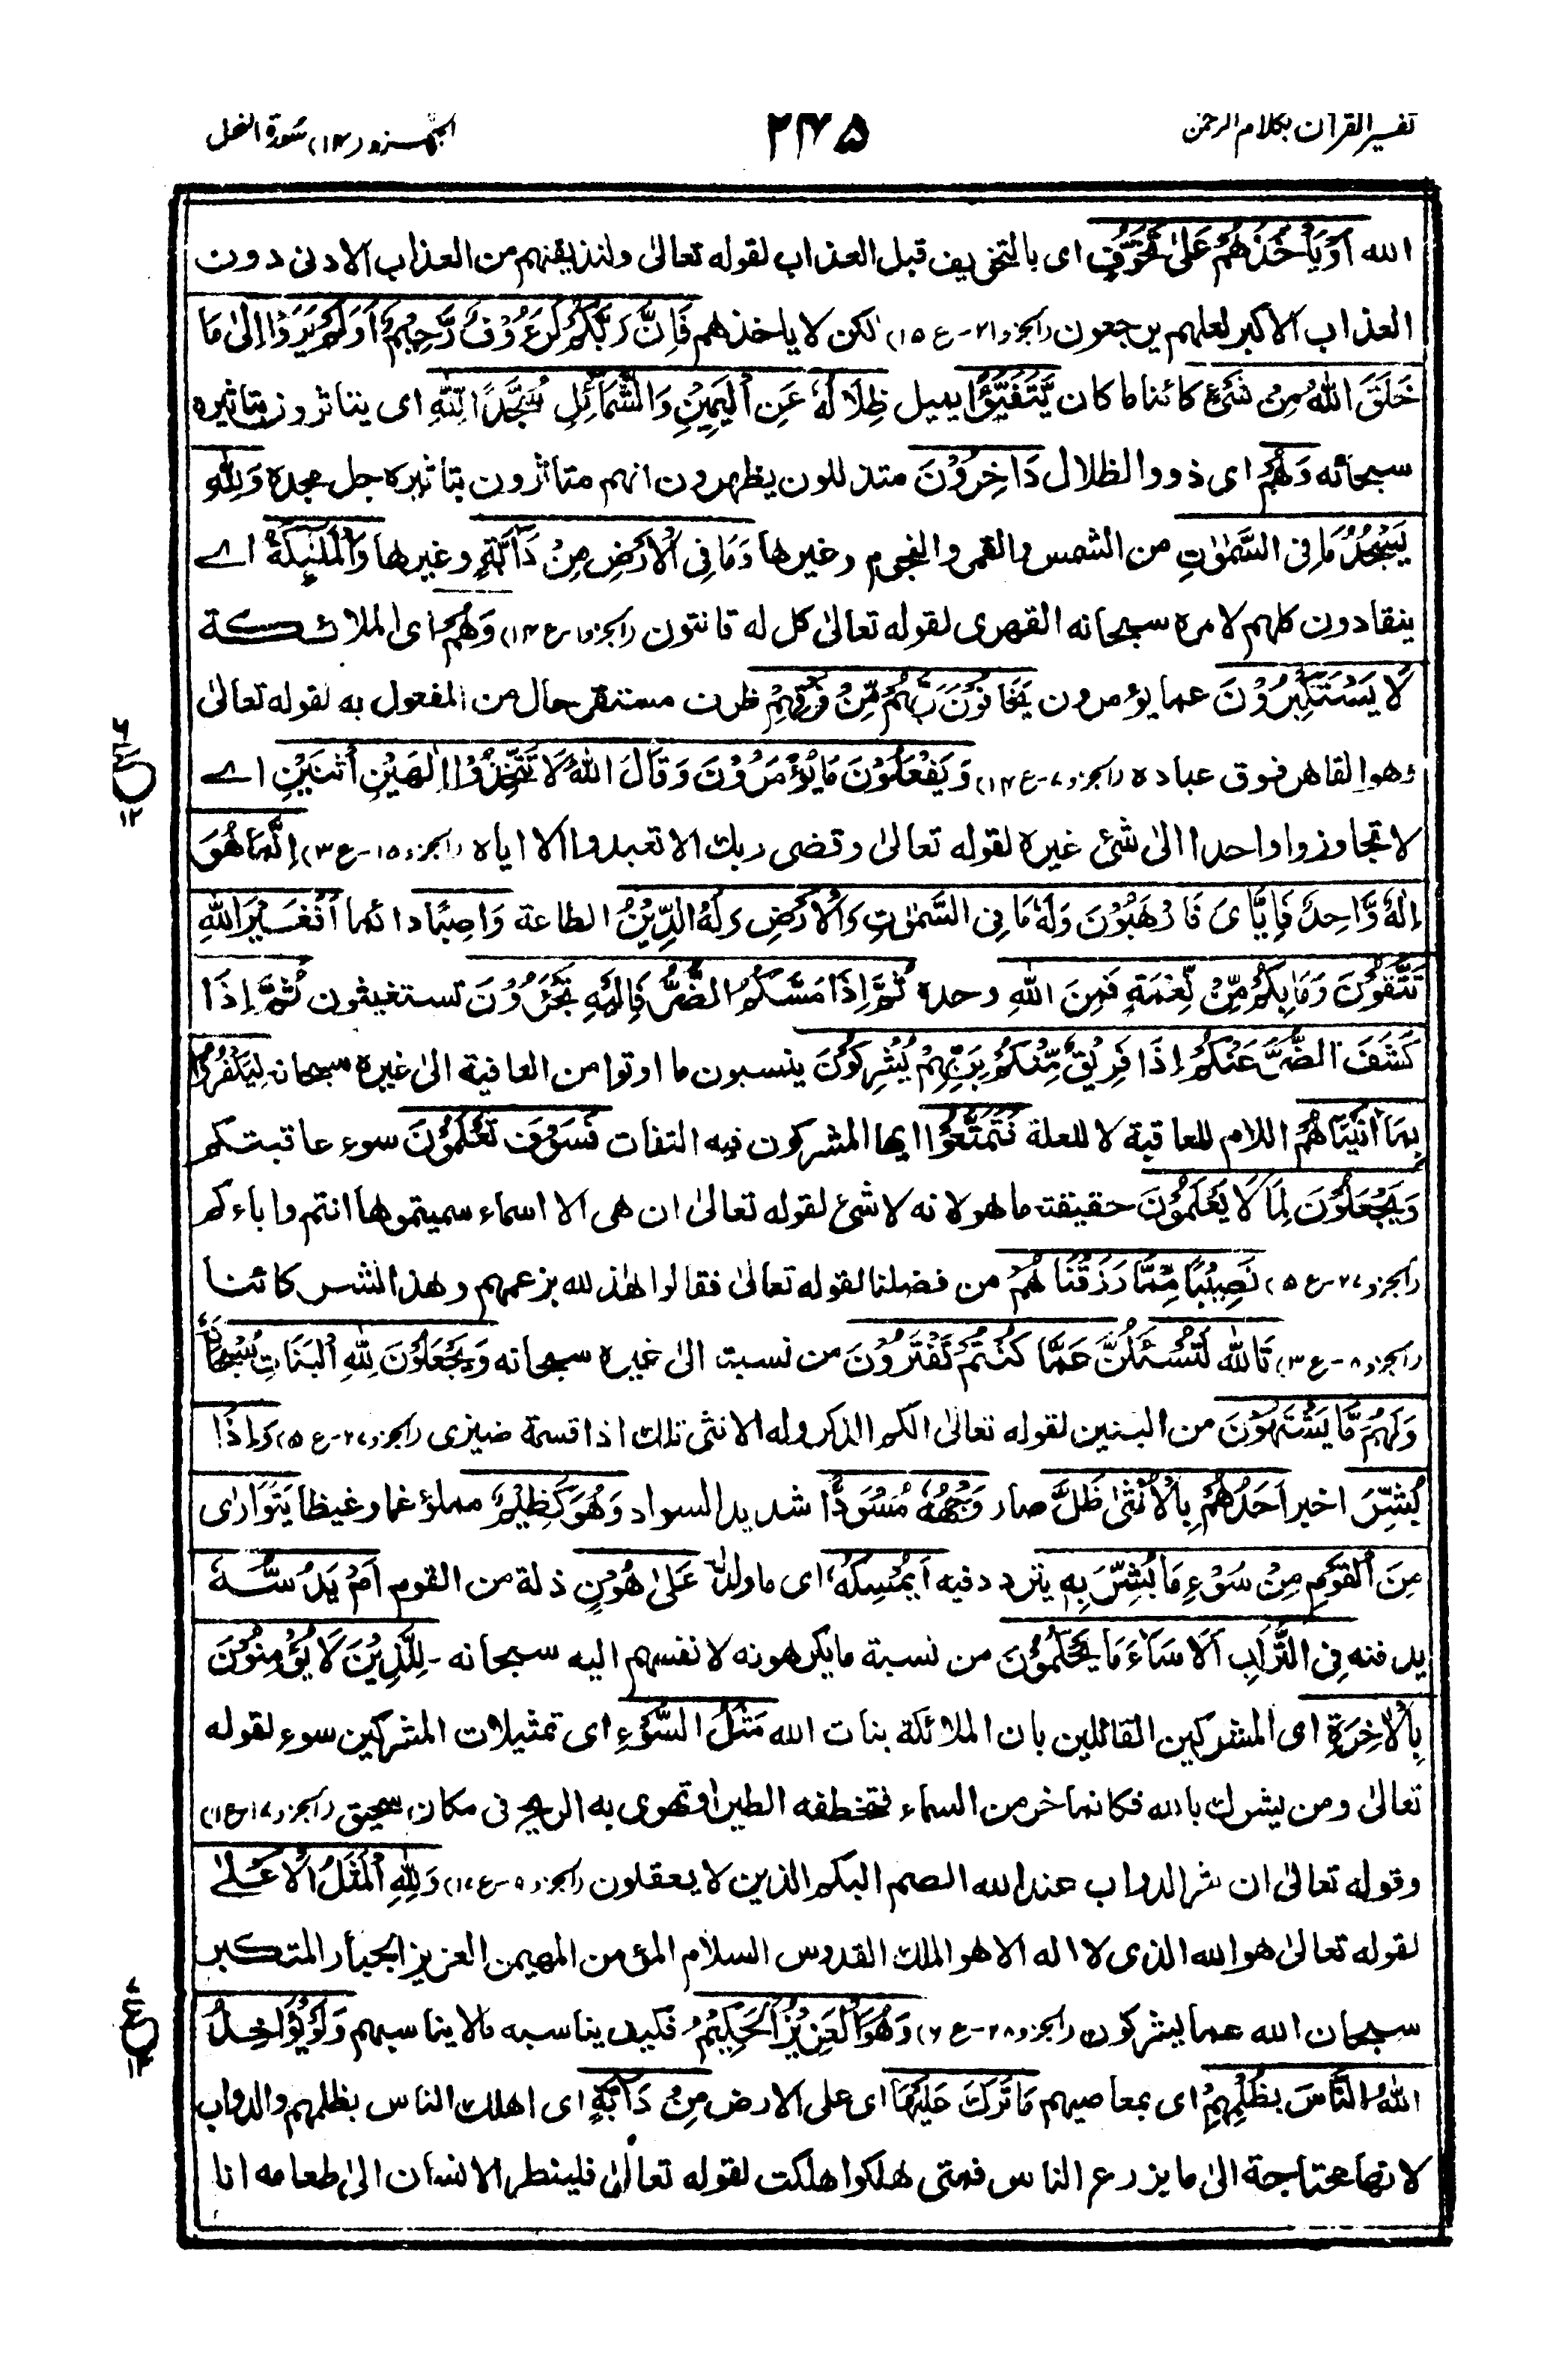 تفسير القرآن بكلام الرحمن
٢٤٥
الجزو (١٤) سورة النحل
الله اَوْ يَاْخُذَهُمْ عَلٰى تَخَوُّفٍ اى بالتخويف قبل العذاب لقوله تعالىٰ ولنذيقنهم من العذاب الادنى دون
العذاب الاكبر لعلهم يرجعون (الجزو ٢١-ع ١٥) لكن لا ياخذهم فَاِنَّ رَبَّكُمْ لَرَءُوْفٌ رَّحِيْمٌ اَوَلَمْ يَرَوْا اِلٰى مَا
خَلَقَ اللّٰهُ مِنْ شَىْءٍ كائنا ما كان يَّتَفَيَّؤُا يميل ظِلَالُهٗ عَنِ الْيَمِيْنِ وَالشَّمَآئِلِ سُجَّدًا لِّلّٰهِ اى يتاثرون بتاثيره
سبحانه وَهُمْ اى ذوو الظلال دَاخِرُوْنَ متذللون يظهرون انهم متاثرون بتاثيره جل مجده وَلِلّٰهِ
يَسْجُدُ مَا فِى السَّمٰوٰتِ من الشمس والقمر والنجوم وغيرها وَمَا فِى الْاَرْضِ مِنْ دَآبَّةٍ وغيرها وَّالْمَلٰٓئِكَةُ اے
ينقادون كلهم لامره سبحانه القهرى لقوله تعالىٰ كل له قانتون (الجزو ١-ع ١٤) وَهُمْ اى الملائكة
لَا يَسْتَكْبِرُوْنَ عما يؤمرون يَخَافُوْنَ رَبَّهُمْ مِّنْ فَوْقِهِمْ ظرف مستقر حال من المفعول به لقوله تعالىٰ
وهو القاهر فوق عباده (الجزو ٧-ع ١٤) وَيَفْعَلُوْنَ مَا يُؤْمَرُوْنَ وَقَالَ اللّٰهُ لَا تَتَّخِذُوْا اِلٰهَيْنِ اثْنَيْنِ اے
لا تجاوزوا واحدا الىٰ شئ غيره لقوله تعالىٰ وقضى ربك الا تعبدوا الا اياه (الجزو ١٥-ع ٣) اِنَّمَا هُوَ
اِلٰهٌ وَّاحِدٌ فَاِيَّاىَ فَارْهَبُوْنَ وَلَهٗ مَا فِى السَّمٰوٰتِ وَالْاَرْضِ وَلَهُ الدِّيْنُ الطاعة وَاصِبًا دائما اَفَغَيْرَ اللّٰهِ
تَتَّقُوْنَ وَمَا بِكُمْ مِّنْ نِّعْمَةٍ فَمِنَ اللّٰهِ وحده ثُمَّ اِذَا مَسَّكُمُ الضُّرُّ فَاِلَيْهِ تَجْـَٔرُوْنَ تستغيثون ثُمَّ اِذَا
كَشَفَ الضُّرَّ عَنْكُمْ اِذَا فَرِيْقٌ مِّنْكُمْ بِرَبِّهِمْ يُشْرِكُوْنَ ينسبون ما اوتوا من العافية الىٰ غيره سبحانه لِيَكْفُرُوْا
بِمَا اٰتَيْنَاهُمْ اللام للعاقبة لا للعلة فَتَمَتَّعُوْا ايها المشركون فيه التفات فَسَوْفَ تَعْلَمُوْنَ سوء عاقبتكم
وَيَجْعَلُوْنَ لِمَا لَا يَعْلَمُوْنَ حقيقته ما هو لانه لا شئ لقوله تعالىٰ ان هى الا اسماء سميتموها انتم واباءكم
(الجزو ٢٧-ع ٥) نَصِيْبًا مِّمَّا رَزَقْنَاهُمْ من فضلنا لقوله تعالىٰ فقالوا هٰذا لله بزعمهم وهذا لشركائنا
(الجزو ٨-ع ٣) تَاللّٰهِ لَتُسْـَٔلُنَّ عَمَّا كُنْتُمْ تَفْتَرُوْنَ من نسبة الىٰ غيره سبحانه وَيَجْعَلُوْنَ لِلّٰهِ الْبَنَاتِ سُبْحَانَهٗ
وَلَهُمْ مَّا يَشْتَهُوْنَ من البنين لقوله تعالىٰ الكم الذكر وله الانثى تلك اذا قسمة ضيزى (الجزو ٢٧-ع ٥) وَاِذَا
بُشِّرَ اخبر اَحَدُهُمْ بِالْاُنْثٰى ظَلَّ صار وَجْهُهٗ مُسْوَدًّا شديد السواد وَهُوَ كَظِيْمٌ مملؤ غما وغيظا يَتَوَارٰى
مِنَ الْقَوْمِ مِنْ سُوْءِ مَا بُشِّرَ بِهٖ يتردد فيه اَيُمْسِكُهٗ اى ما ولد عَلٰى هُوْنٍ ذلة من القوم اَمْ يَدُسُّهٗ
يدفنه فِى التُّرَابِ اَلَا سَآءَ مَا يَحْكُمُوْنَ من نسبة ما يكرهونه لانفسهم اليه سبحانه - لِلَّذِيْنَ لَا يُؤْمِنُوْنَ
بِالْاٰخِرَةِ اى المشركين القائلين بان الملائكة بنات الله مَثَلُ السَّوْءِ اى تمثيلات المشركين سوء لقوله
تعالىٰ ومن يشرك بالله فكانما خر من السماء فتخطفه الطير او تهوى به الريح فى مكان سحيق (الجزو ١٧-ع ١١)
وقوله تعالىٰ ان شر الدواب عند الله الصم البكم الذين لا يعقلون (الجزو ٩-ع ١٧) وَلِلّٰهِ الْمَثَلُ الْاَعْلٰى
لقوله تعالىٰ هو الله الذى لا اله الا هو الملك القدوس السلام المؤمن المهيمن العزيز الجبار المتكبر
سبحان الله عما يشركون (الجزو ٢٨-ع ٦) وَهُوَ الْعَزِيْزُ الْحَكِيْمُ فكيف يناسبه مالا يناسبهم وَلَوْ يُؤَاخِذُ
اللّٰهُ النَّاسَ بِظُلْمِهِمْ اى بمعاصيهم مَا تَرَكَ عَلَيْهَا اى على الارض مِنْ دَآبَّةٍ اى اهلك الناس بظلمهم والدواب
لانها محتاجة الىٰ ما يزرع الناس فمتى هلكوا هلكت لقوله تعالىٰ فلينظر الانسان الىٰ طعامه انا